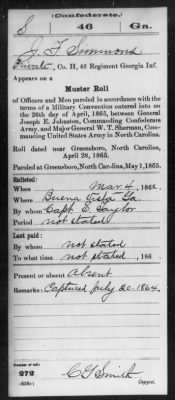 (Confederate.)
S 46 Ga.
J. T. Simmons
Private, Co. H, 46 Regiment Georgia Inf.
Appears on a
Muster Roll
of Officers and Men paroled in accordance with the
terms of a Military Convention entered into on
the 26th day of April, 1865, between General
Joseph E. Johnston, Commanding Confederate
Army, and Major General W. T. Sherman, Com-
manding United States Army in North Carolina.
Roll dated near Greensboro, North Carolina,
April 28, 1865.
Paroled at Greensboro, North Carolina, May 1, 1865.
Enlisted:
When Mar. 4, 1862.
Where Buena Vista Ga.
By whom Capt. E. Taylor
Period not stated
Last paid:
By whom not stated
To what time not stated, 186 .
Present or absent Absent
Remarks: Captured July 20. 1864.
Number of roll:
272
(639c)
C. G. Smith
Copyist.